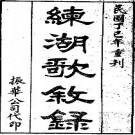 民國丁巳年重刊
練湖歌敘錄
振華公司代印